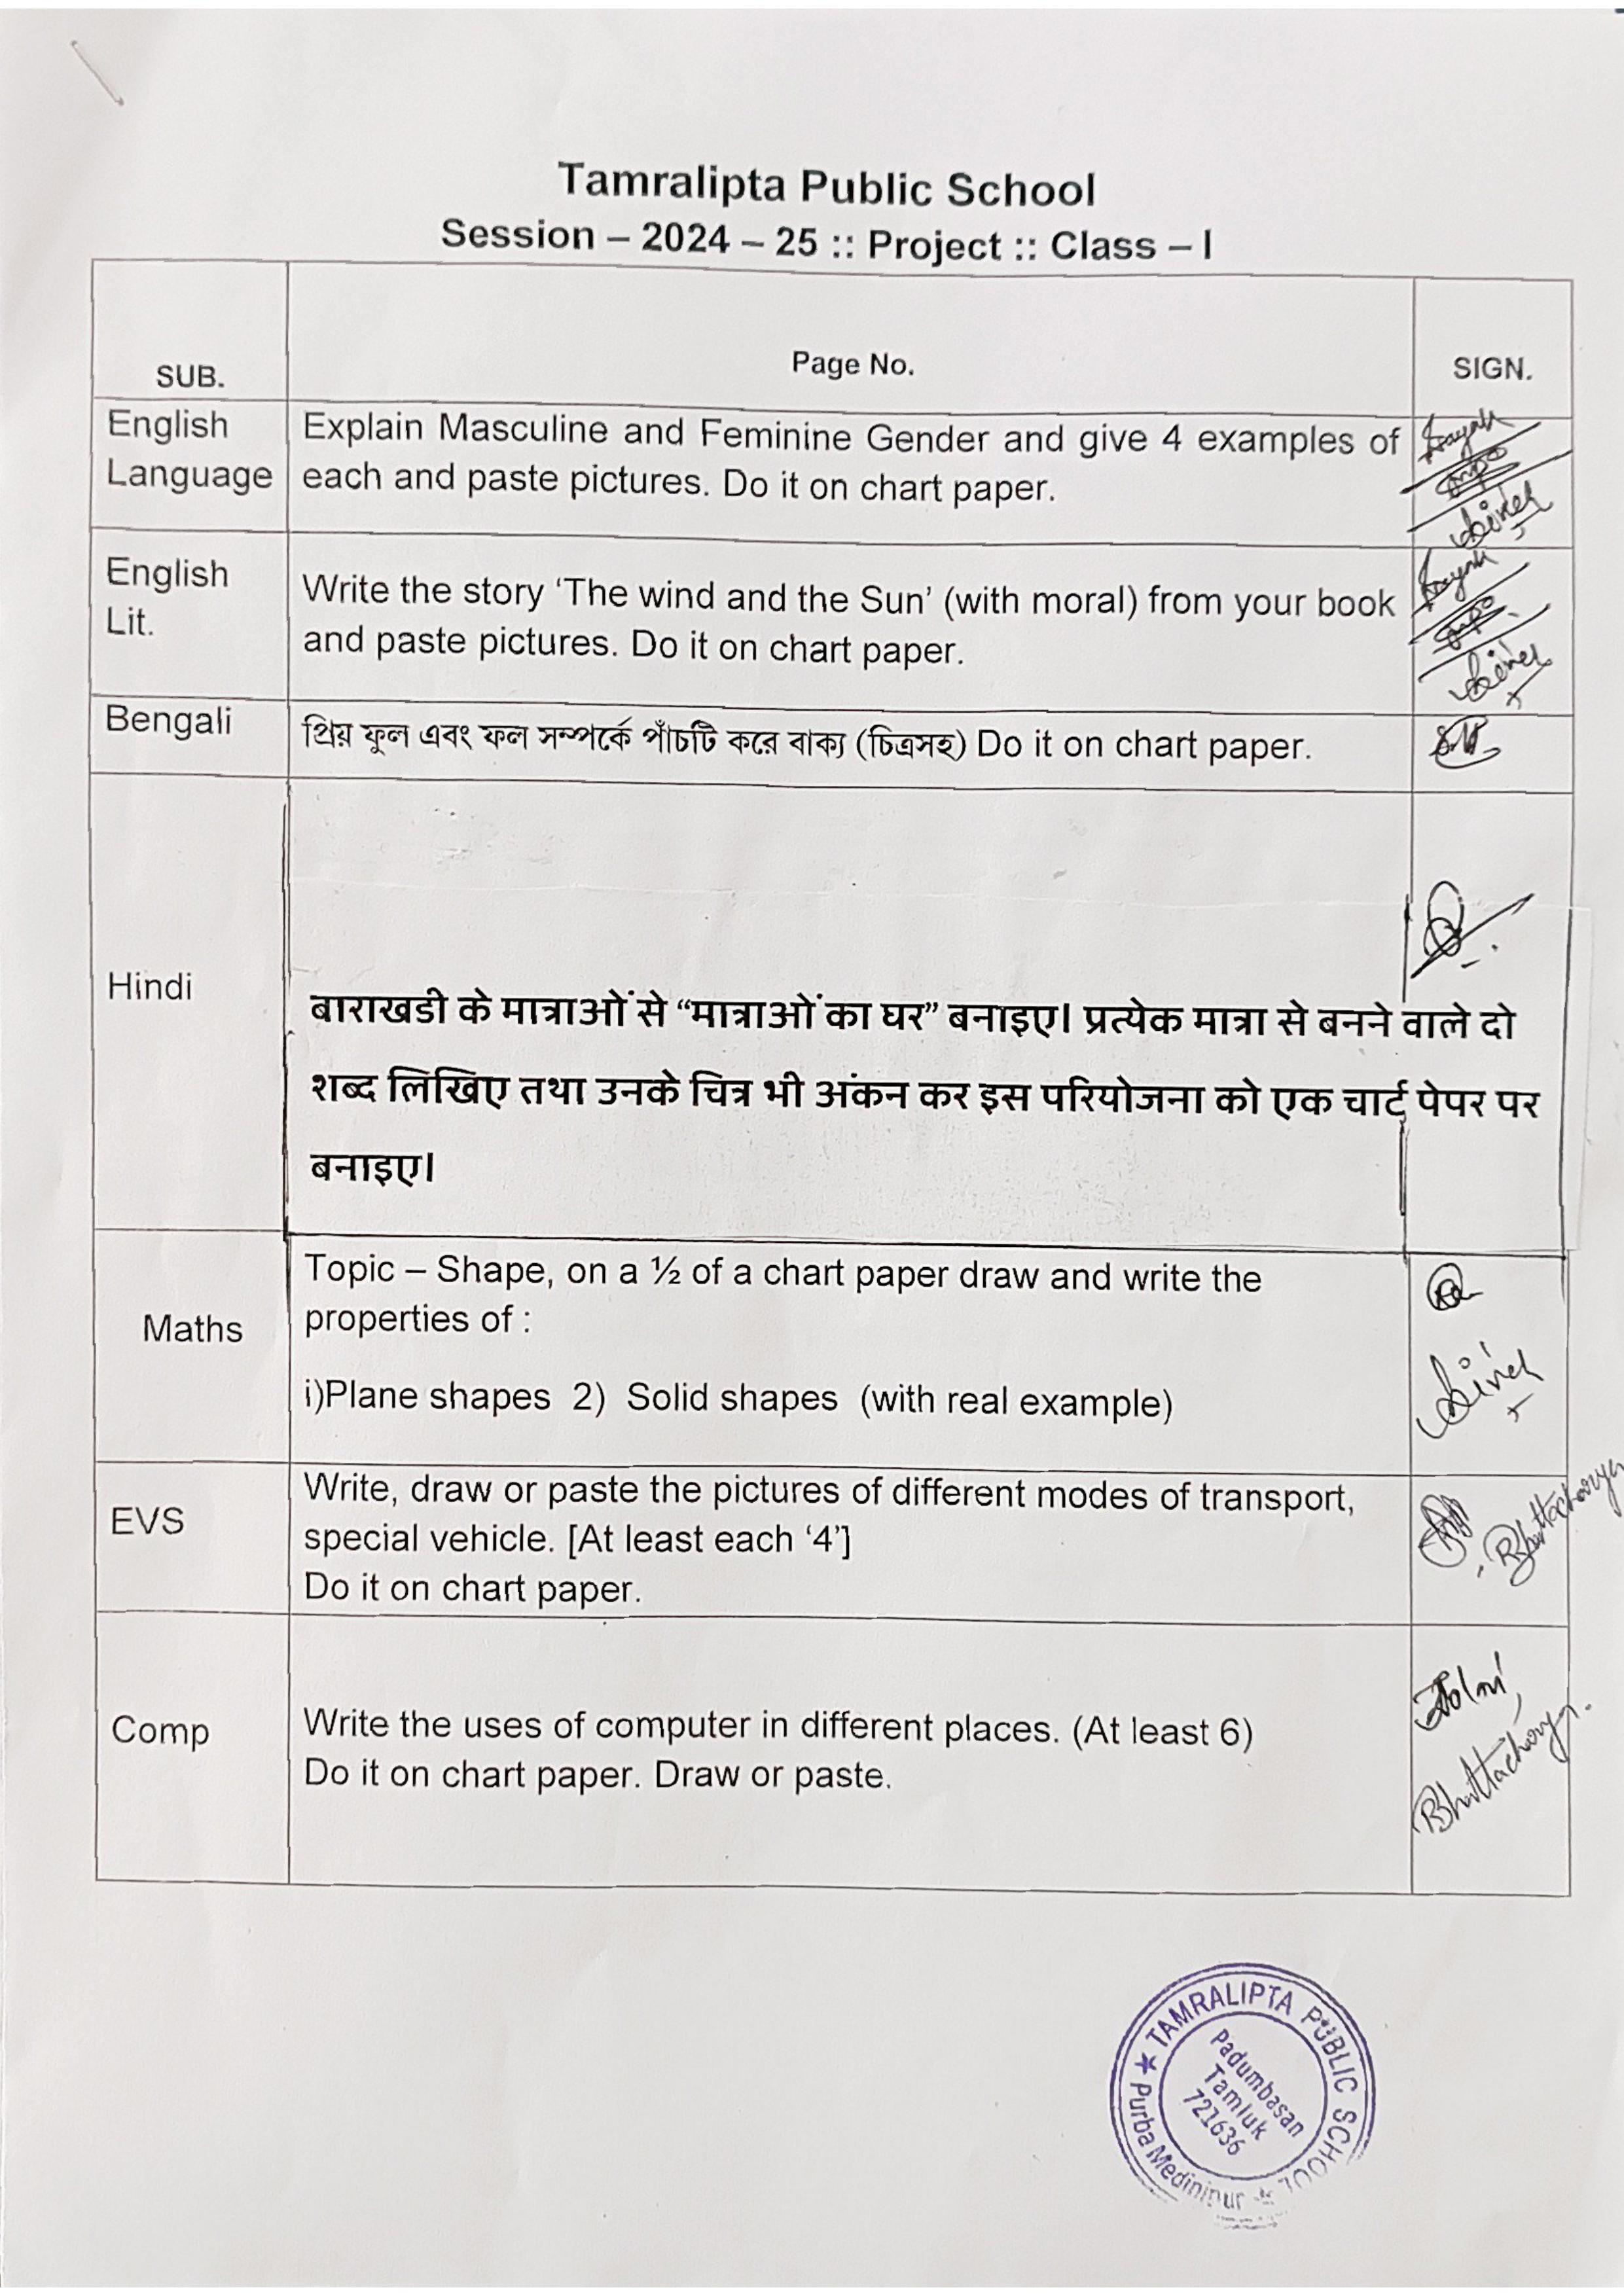 Tamralipta Public School
Session – 2024 – 25 :: Project :: Class – I
SUB.
Page No.
SIGN.
English
Language
Explain Masculine and Feminine Gender and give 4 examples of
each and paste pictures. Do it on chart paper.
English
Lit.
Write the story ‘The wind and the Sun’ (with moral) from your book
and paste pictures. Do it on chart paper.
Bengali
প্রিয় ফুল এবং ফল সম্পর্কে পাঁচটি করে বাক্য (চিত্রসহ) Do it on chart paper.
Hindi
बाराखडी के मात्राओं से “मात्राओं का घर” बनाइए। प्रत्येक मात्रा से बनने वाले दो
शब्द लिखिए तथा उनके चित्र भी अंकन कर इस परियोजना को एक चार्ट पेपर पर
बनाइए।
Maths
Topic – Shape, on a ½ of a chart paper draw and write the
properties of :
i)Plane shapes 2) Solid shapes (with real example)
EVS
Write, draw or paste the pictures of different modes of transport,
special vehicle. [At least each ‘4’]
Do it on chart paper.
Bhattacharya
Comp
Write the uses of computer in different places. (At least 6)
Do it on chart paper. Draw or paste.
Bhattacharya.
★ TAMRALIPTA PUBLIC SCHOOL ★
Purba Medinipur
Padumbasan
Tamluk
721636